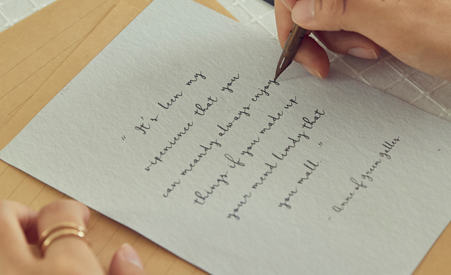 " It's been my
experience that you
can meandy always enjoy
things if you made up
your mend limdy that
you mall "
- Anne of green galles